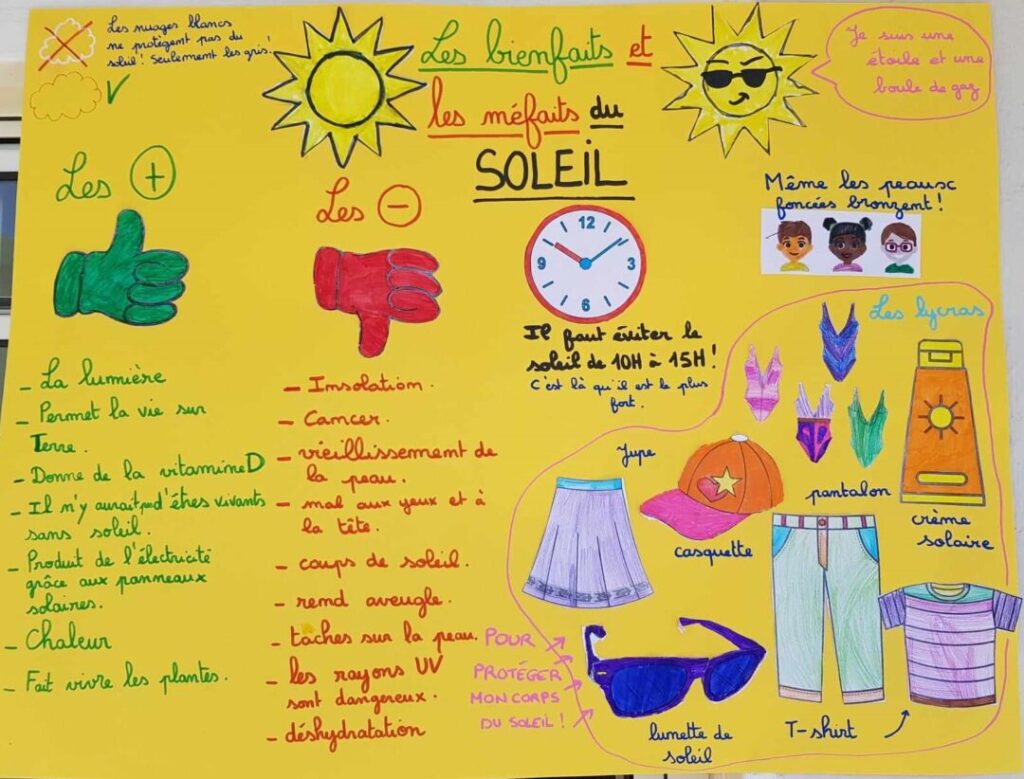 Les nuages blancs
ne protègent pas du
soleil ! Seulement les gris !
Les bienfaits et
les méfaits du
SOLEIL
Je suis une
étoile et une
boule de gaz
Les +
- La lumière
- Permet la vie sur
Terre.
- Donne de la vitamine D
- Il n'y aurait pas d'êtres vivants
sans soleil.
- Produit de l'électricité
grâce aux panneaux
solaires.
- Chaleur
- Fait vivre les plantes.
Les -
- Insolation.
- Cancer.
- vieillissement de
la peau.
- mal aux yeux et à
la tête.
- coups de soleil.
- rend aveugle.
- taches sur la peau.
- les rayons UV
sont dangereux.
- déshydratation
12
3
6
9
Il faut éviter le
soleil de 10H à 15H !
C'est là qu'il est le plus
fort.
Même les peaux
foncées bronzent !
Les lycras
Jupe
casquette
pantalon
crème
solaire
POUR
PROTÉGER
MON CORPS
DU SOLEIL !
lunette de
soleil
T-shirt